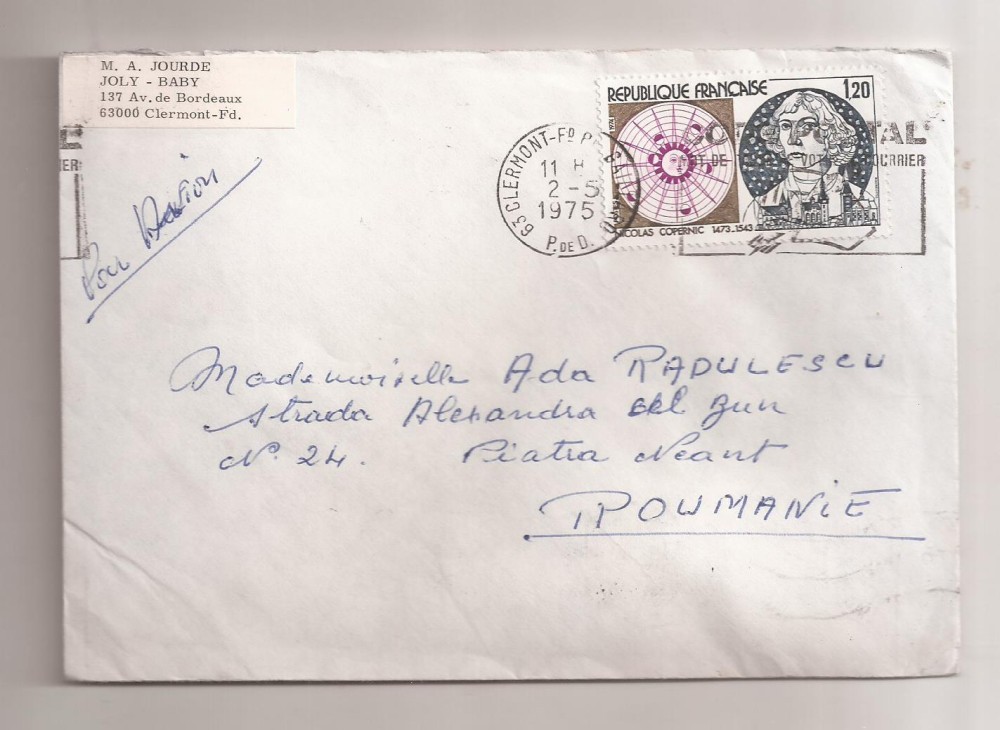 M. A. JOURDE
JOLY - BABY
137 Av. de Bordeaux
63000 Clermont-Fd.
Par Avion
REPUBLIQUE FRANÇAISE 1,20
1974
NICOLAS COPERNIC 1473-1543
63 CLERMONT-Fd
11 H
2 - 5
1975
P. DE D.
VOTRE COURRIER
IER
Mademoiselle Ada RADULESCU
Strada Alexandra cel Bun
N° 24. Piatra Neant
ROUMANIE